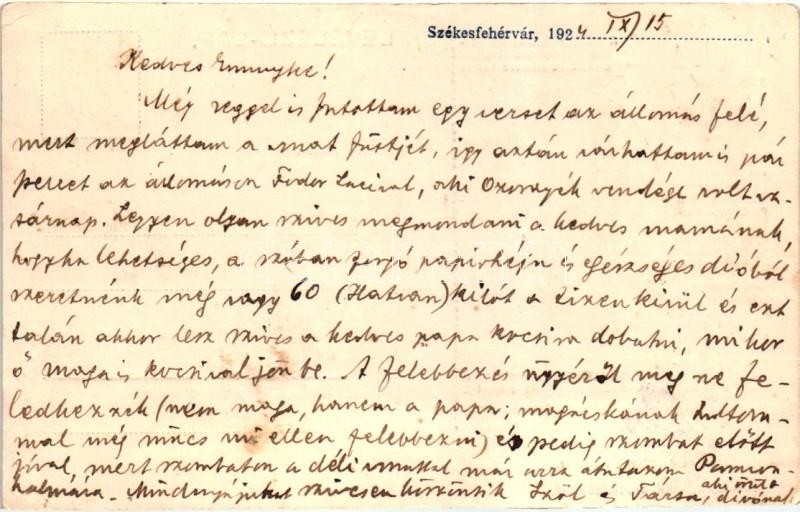 Székesfehérvár, 1924 IX/15
Kedves Emmyke!
Még reggel is futottam egy verset az állomás felé,
mert megláttam a vonat füstjét, így aztán várhattam is pár
percet az állomáson Fodor Lacival, aki vendége volt va-
sárnap. Legyen olyan szives megmondani a kedves mamának,
hogyha lehetséges, a szóban forgó papirhéju és egészséges dióból
szeretnénk még vagy 60 (Hatvan) kilót a tizenkívül és ezt
talán akkor lesz szives a kedves papa kocsira dobatni, mikor
ő maga is kocsival jön be. A felebbezés ügyéről meg ne fe-
ledkezzék (nem maga, hanem a papa; magácskának
még nincs mi ellen felebbezni) és pedig szombat előtt
jóval, mert szombaton a déli vonattal már utazom
Mindnyájukat szivesen köszöntik és Társa,